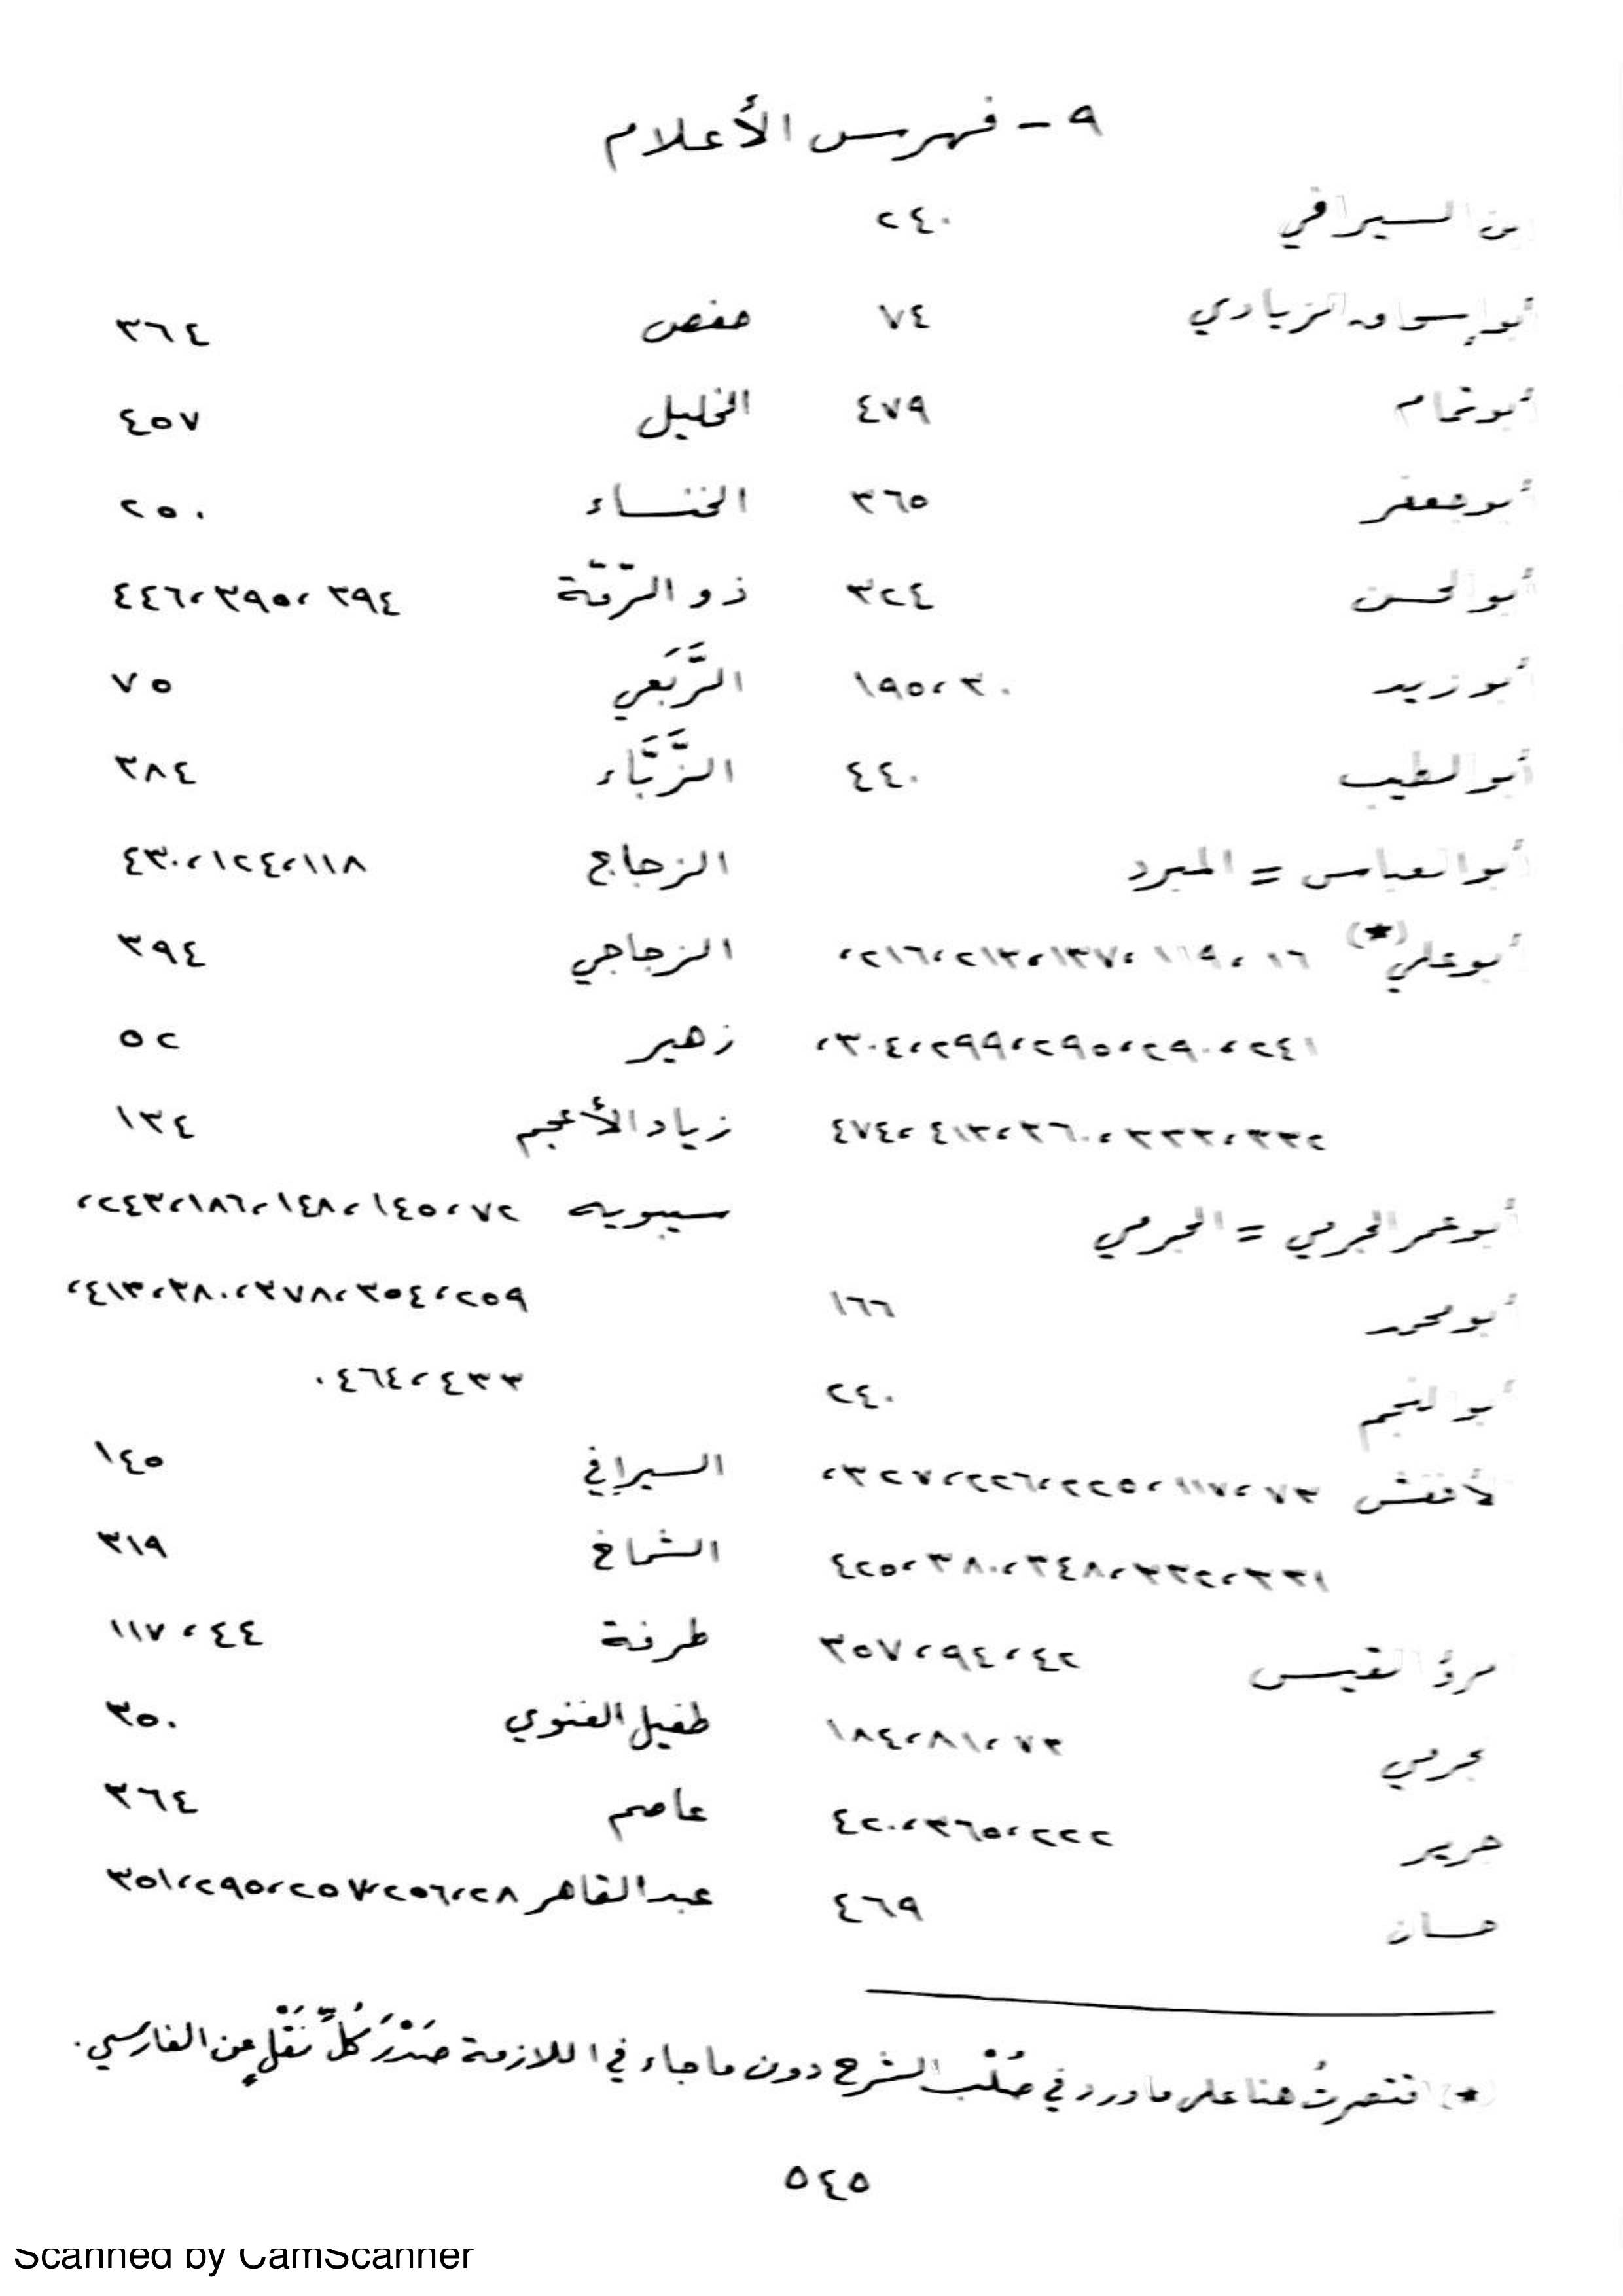 ٩ - فهرس الأعلام
بن السيرافي ٢٤٠
أبو إسحاق الزيادي ٧٤
أبو تمام ٤٧٩
أبو جعفر ٣٦٥
أبو الحسن ٣٢٤
أبو زيد ٣٠، ١٩٥
أبو الطيب ٤٤٠
أبو العباس = المبرد
أبو علي (*) ١٦، ١١٩، ١٣٧، ٢١٣، ٢١٦،
٢٤١، ٢٩٠، ٢٩٥، ٢٩٩، ٣٠٤،
٣٣٢، ٣٣٣، ٣٦٠، ٤١٣، ٤٧٤
أبو عمر الجرمي = الجرمي
أبو محمد ١٦٦
أبو النجم ٢٤٠
لأخفش ٧٣، ١١٧، ٢٢٥، ٢٢٦، ٣٢٧،
٣٣١، ٣٣٢، ٣٤٨، ٣٨٠، ٤٢٥
مرؤ القيس ٤٢، ٩٤، ٣٥٧
جرمي ٧٣، ٨١، ١٨٤
جرير ٢٢٢، ٣٦٥، ٤٢٠
حسان ٤٦٩
حفص ٣٦٤
الخليل ٤٥٧
الخنساء ٢٥٠
ذو الرّمّة ٣٩٤، ٣٩٥، ٤٤٦
الرَّبَعي ٧٥
الزَّبَّاء ٣٨٤
الزجاج ١١٨، ١٢٤، ٤٣٠
الزجاجي ٣٩٤
زهير ٥٢
زياد الأعجم ١٣٤
سيبويه ٧٢، ١٤٥، ١٤٨، ١٨٦، ٢٤٣،
٢٥٩، ٣٥٤، ٣٧٨، ٣٨٠، ٤١٣،
٤٣٣، ٤٦٤.
السيرافي ١٤٥
الشماخ ٣١٩
طرفة ٤٤، ١١٧
طفيل الغنوي ٣٥٠
عاصم ٣٦٤
عبد القاهر ٢٨، ٢٥٦، ٢٥٧، ٢٩٥، ٣٥١
(*) اقتصرتُ هنا على ما ورد في صُلْب الشرح دون ما جاء في اللازمة صَدْرَ كُلِّ نَقْلٍ عن الفارسي.
٥٤٥
Scanned by CamScanner